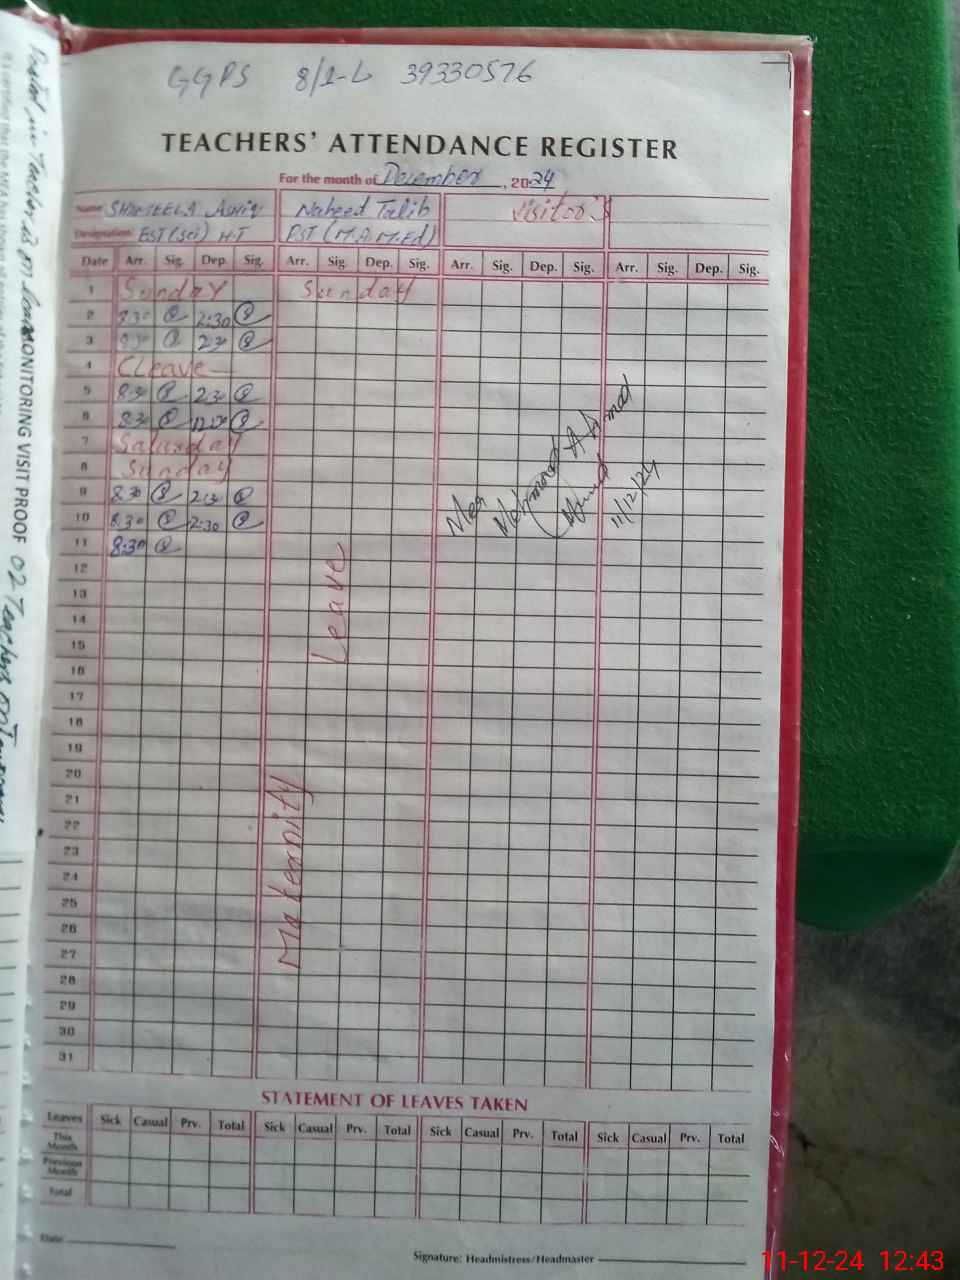 GGPS 8/1-L 39330576
TEACHERS' ATTENDANCE REGISTER
For the month of December, 2024
Name: SHAMEELA Ashiq Naheed Talib Visitor's
Designation: EST (Sci) H.T PST (M.A M.Ed)
Date Arr. Sig. Dep. Sig. Arr. Sig. Dep. Sig. Arr. Sig. Dep. Sig. Arr. Sig. Dep. Sig.
1 Sunday Sunday
2 8:30 2:30
3 8:30 2:30
4 CLeave
5 8:30 2:30
6 8:30 12:00
7 Saturday
8 Sunday
9 8:30 2:30
10 8:30 2:30
11 8:30
12
13
14
15
16
17
18
19
20
21
22
23
24
25
26
27
28
29
30
31
Maternity Leave
Mehmood Ahmad
11/12/24
STATEMENT OF LEAVES TAKEN
Leaves Sick Casual Prv. Total Sick Casual Prv. Total Sick Casual Prv. Total Sick Casual Prv. Total
This Month
Previous Month
Total
Date
Signature: Headmistress/Headmaster
MONITORING VISIT PROOF 02 Teachers
11-12-24 12:43